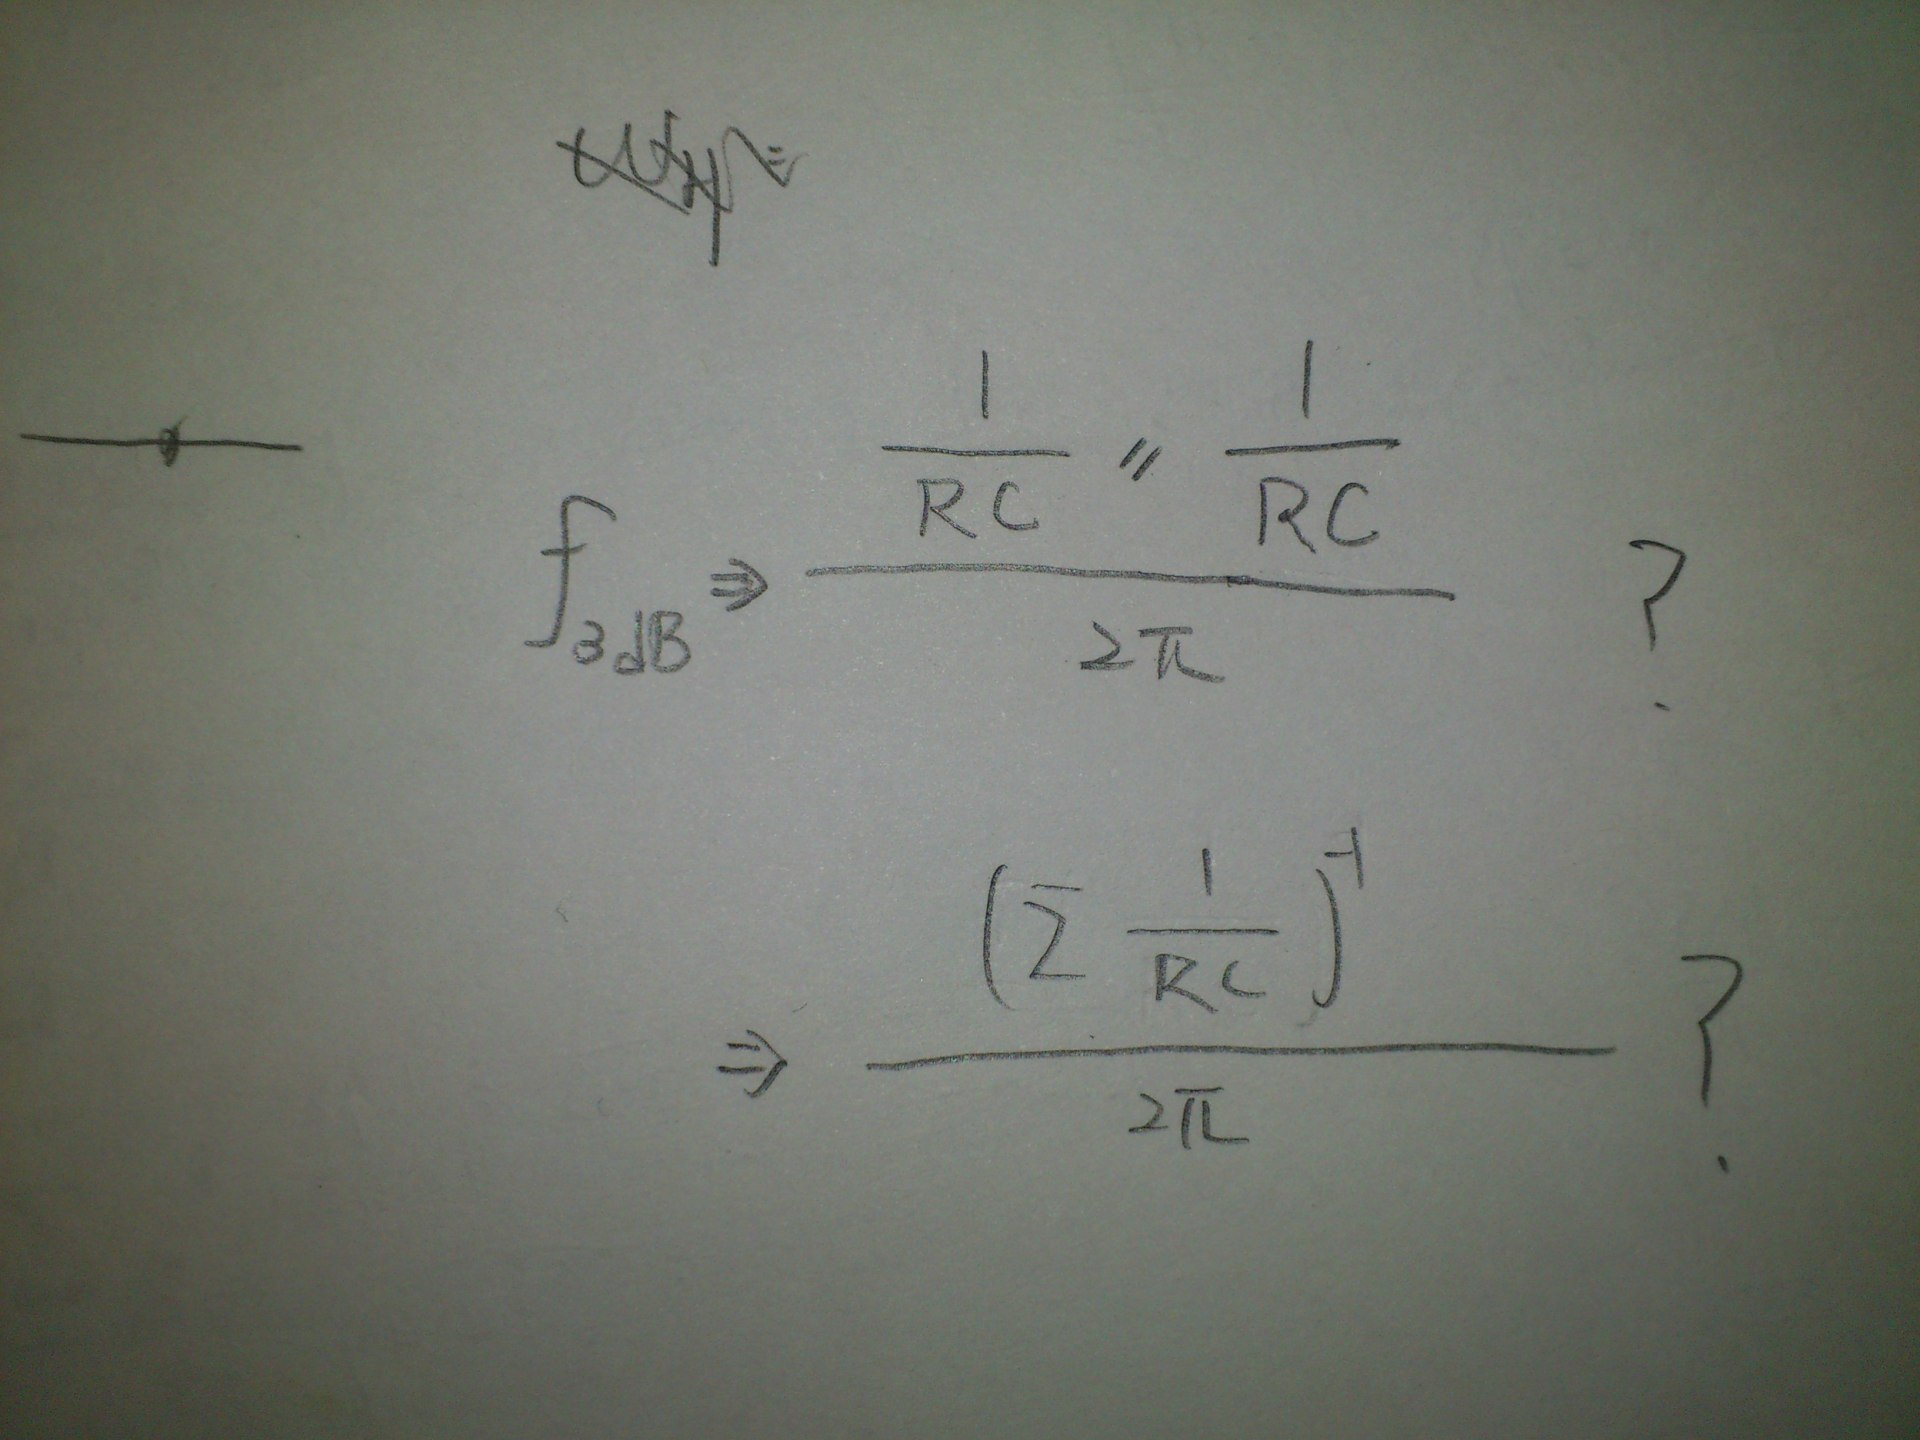 f3dB ⇒ (1/RC // 1/RC) / 2π ?
⇒ (Σ 1/RC)^-1 / 2π ?